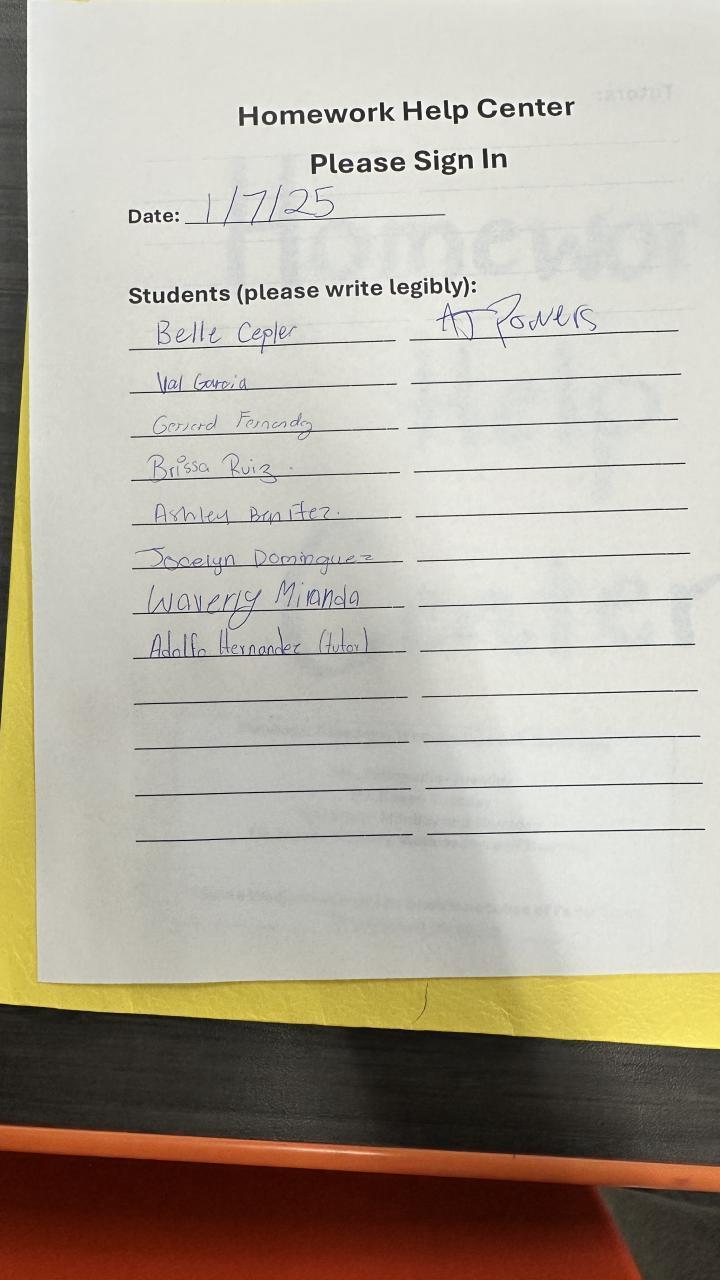 Homework Help Center
Please Sign In
Date: 1/7/25
Students (please write legibly):
Belle Cepler
AJ Powers
Val Garcia
Gerard
Brissa Ruiz.
Ashley Benitez.
Jocelyn Dominguez
Waverly Miranda
Adolfo Hernandez (tutor)